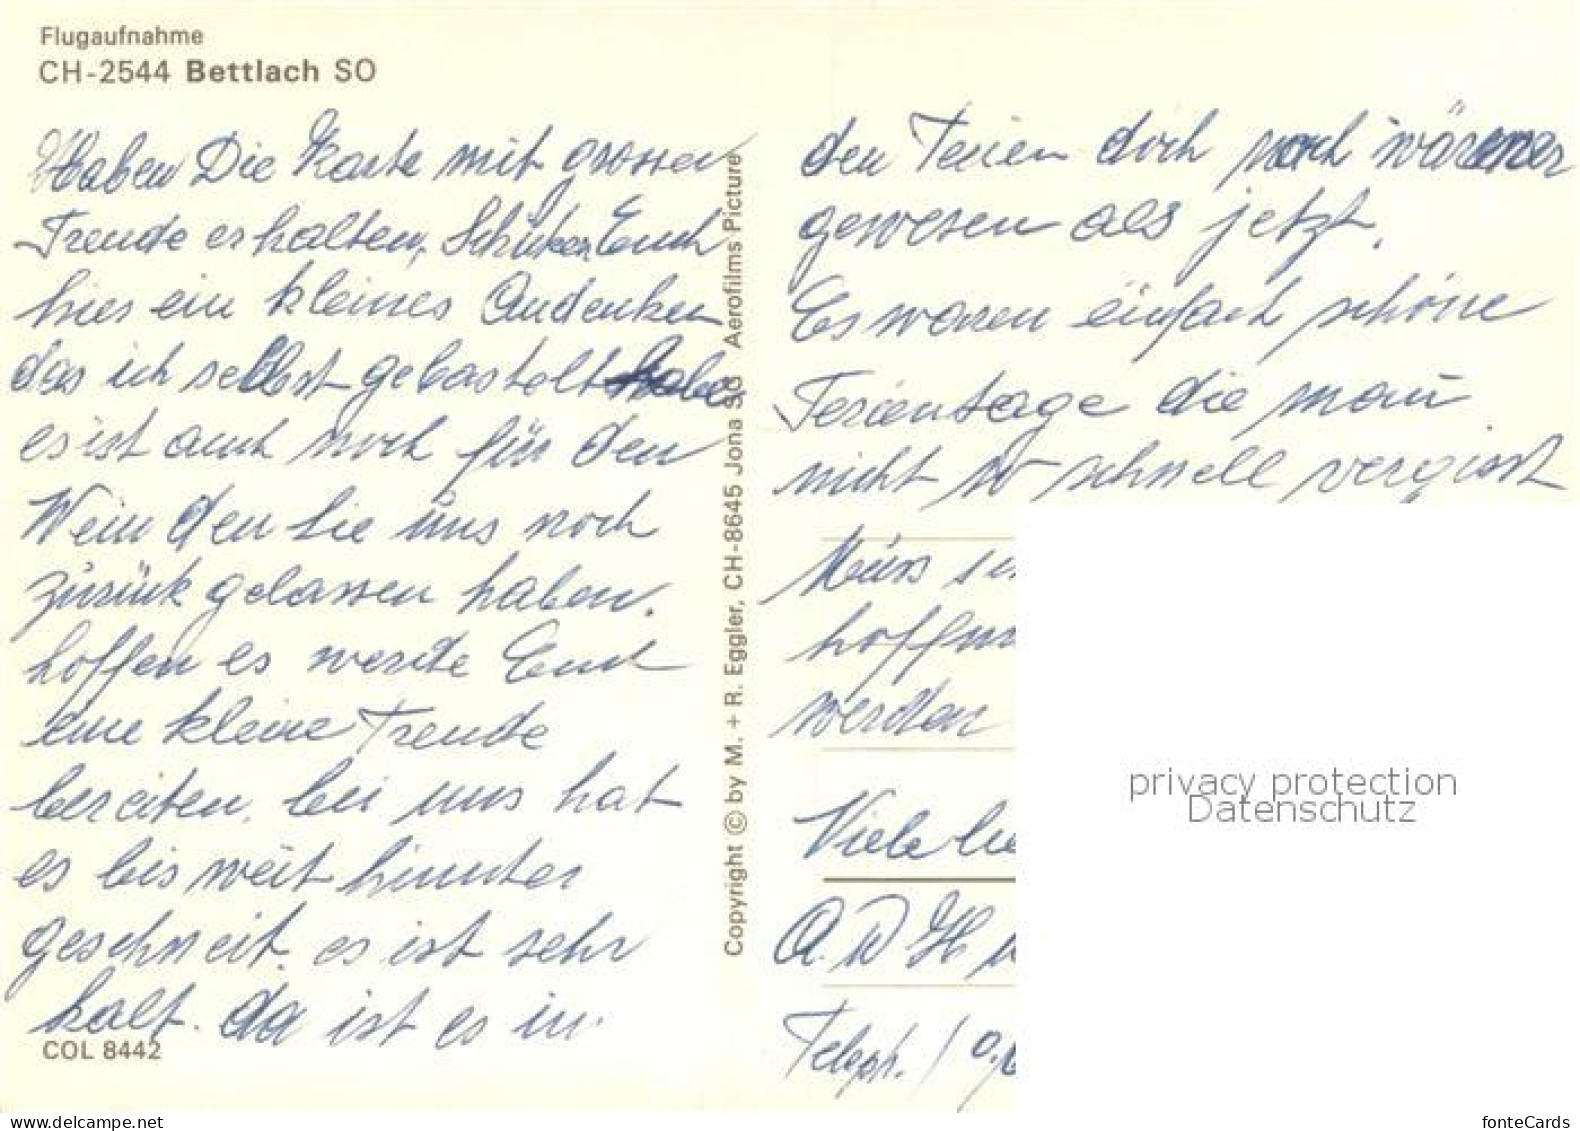 Flugaufnahme
CH-2544 Bettlach SO
Haben Die Karte mit grossen
Freude erhalten, Schicken Euch
hier ein kleines Andenken
das ich selbst gebastelt habe
es ist auch noch für den
Wein den Sie uns noch
zurück gelassen haben.
hoffen es werde Euch
eine kleine Freude
bereiten. bei uns hat
es bis weit hinunter
geschneit. es ist sehr
kalt. da ist es in
COL 8442
Copyright © by M. + R. Eggler, CH-8645 Jona SG Aerofilms Picture
den Ferien doch noch wärmer
gewesen als jetzt.
Es waren einfach schöne
Ferientage die man
nicht so schnell vergisst
werden
Viele
A. D H
Teleph. /
privacy protection
Datenschutz
www.delcampe.net
fonteCards